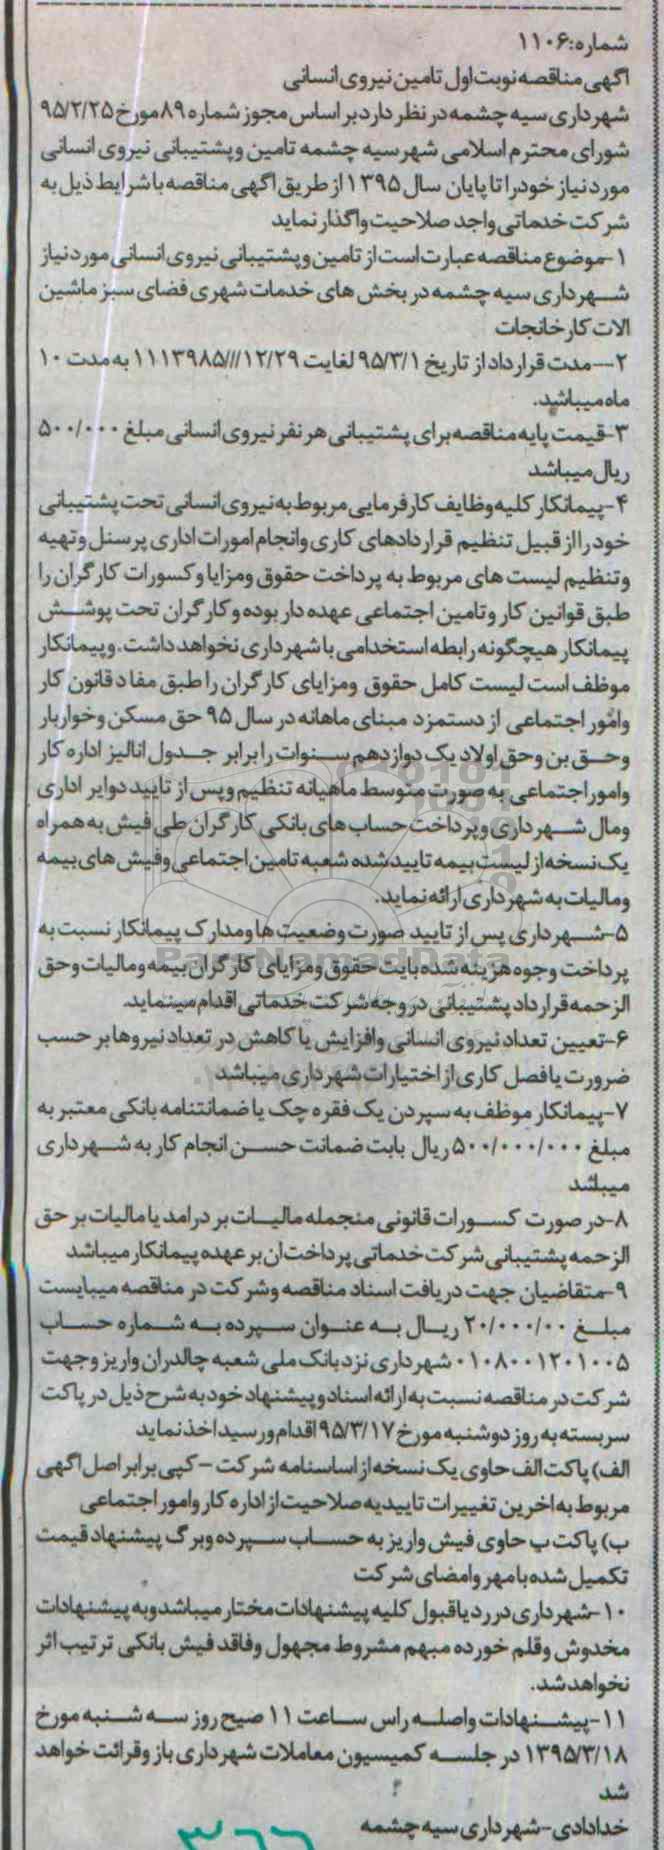 شماره:۱۱۰۶
اگهی مناقصه نوبت اول تامین نیروی انسانی
شهرداری سیه چشمه در نظر دارد بر اساس مجوز شماره ۸۹ مورخ ۹۵/۲/۲۵
شورای محترم اسلامی شهر سیه چشمه تامین وپشتیبانی نیروی انسانی
مورد نیاز خود را تا پایان سال ۱۳۹۵ از طریق اگهی مناقصه با شرایط ذیل به
شرکت خدماتی واجد صلاحیت واگذار نماید
۱-موضوع مناقصه عبارت است از تامین وپشتیبانی نیروی انسانی مورد نیاز
شهرداری سیه چشمه در بخش های خدمات شهری فضای سبز ماشین
الات کارخانجات
۲--مدت قرارداد از تاریخ ۹۵/۳/۱ لغایت ۱۱۱۳۹۸۵///۱۲/۲۹ به مدت ۱۰
ماه میباشد.
۳-قیمت پایه مناقصه برای پشتیبانی هر نفر نیروی انسانی مبلغ ۵۰۰/۰۰۰
ریال میباشد
۴-پیمانکار کلیه وظایف کارفرمایی مربوط به نیروی انسانی تحت پشتیبانی
خود را از قبیل تنظیم قراردادهای کاری وانجام امورات اداری پرسنل وتهیه
وتنظیم لیست های مربوط به پرداخت حقوق ومزایا وکسورات کارگران را
طبق قوانین کار وتامین اجتماعی عهده دار بوده و کارگران تحت پوشش
پیمانکار هیچگونه رابطه استخدامی با شهرداری نخواهد داشت. و پیمانکار
موظف است لیست کامل حقوق ومزایای کارگران را طبق مفاد قانون کار
وامور اجتماعی از دستمزد مبنای ماهانه در سال ۹۵ حق مسکن وخواربار
وحق بن وحق اولاد یک دوازدهم سنوات را برابر جدول انالیز اداره کار
وامور اجتماعی به صورت متوسط ماهیانه تنظیم وپس از تایید دوایر اداری
ومال شهرداری وپرداخت حساب های بانکی کارگران طی فیش به همراه
یک نسخه از لیست بیمه تایید شده شعبه تامین اجتماعی وفیش های بیمه
ومالیات به شهرداری ارائه نماید.
۵-شهرداری پس از تایید صورت وضعیت ها ومدارک پیمانکار نسبت به
پرداخت وجوه هزینه شده بابت حقوق ومزایای کارگران بیمه ومالیات وحق
الزحمه قرارداد پشتیبانی در وجه شرکت خدماتی اقدام مینماید.
ParsNamadData
۶-تعیین تعداد نیروی انسانی وافزایش یا کاهش در تعداد نیروها بر حسب
ضرورت یا فصل کاری از اختیارات شهرداری میباشد
۷-پیمانکار موظف به سپردن یک فقره چک یا ضمانتنامه بانکی معتبر به
مبلغ ۵۰۰/۰۰۰/۰۰۰ ریال بابت ضمانت حسن انجام کار به شهرداری
میباشد
۸-در صورت کسورات قانونی منجمله مالیات بر درامد یا مالیات بر حق
الزحمه پشتیبانی شرکت خدماتی پرداخت ان بر عهده پیمانکار میباشد
۹-متقاضیان جهت دریافت اسناد مناقصه وشرکت در مناقصه میبایست
مبلغ ۲۰/۰۰۰/۰۰ ریال به عنوان سپرده به شماره حساب
۰۱۰۸۰۰۱۲۰۱۰۰۵ شهرداری نزد بانک ملی شعبه چالدران واریز وجهت
شرکت در مناقصه نسبت به ارائه اسناد وپیشنهاد خود به شرح ذیل در پاکت
سربسته به روز دوشنبه مورخ ۹۵/۳/۱۷ اقدام ورسید اخذ نماید
الف) پاکت الف حاوی یک نسخه از اساسنامه شرکت – کپی برابر اصل اگهی
مربوط به اخرین تغییرات تاییدیه صلاحیت از اداره کار وامور اجتماعی
ب) پاکت ب حاوی فیش واریز به حساب سپرده وبرگ پیشنهاد قیمت
تکمیل شده با مهر وامضای شرکت
۱۰-شهرداری در رد یا قبول کلیه پیشنهادات مختار میباشد وبه پیشنهادات
مخدوش وقلم خورده مبهم مشروط مجهول وفاقد فیش بانکی ترتیب اثر
نخواهد شد.
۱۱-پیشنهادات واصله راس ساعت ۱۱ صبح روز سه شنبه مورخ
۱۳۹۵/۳/۱۸ در جلسه کمیسیون معاملات شهرداری باز وقرائت خواهد
شد
خدادادی-شهرداری سیه چشمه
۳۶۶